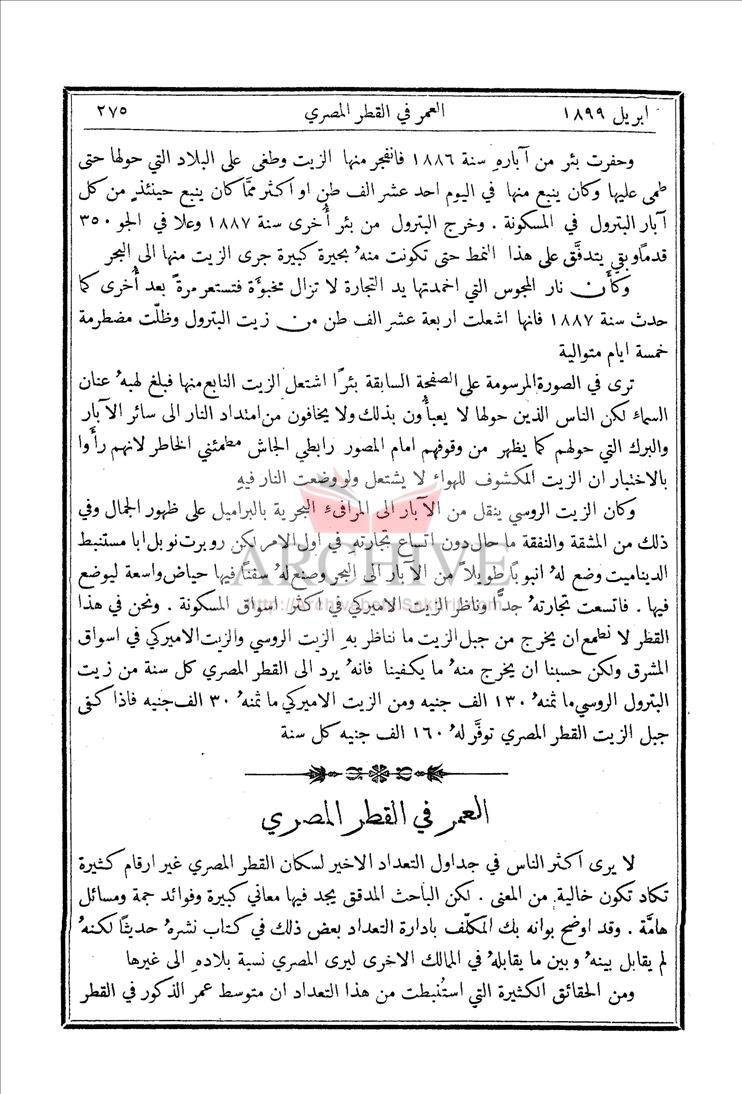 ابريل ١٨٩٩
العمر في القطر المصري
٢٧٥
وحفرت بئر من آبارهِ سنة ١٨٨٦ فانفجر منها الزيت وطغى على البلاد التي حولها حتى
طمى عليها وكان ينبع منها في اليوم احد عشر الف طن او اكثر ممَّا كان ينبع حينئذٍ من كل
آبار البترول في المسكونة . وخرج البترول من بئر أُخرى سنة ١٨٨٧ وعلا في الجو ٣٥٠
قدماً وبقي يتدفَّق على هذا النمط حتى تكونت منهُ بحيرة كبيرة جرى الزيت منها الى البحر
وكأَن نار المجوس التي اخمدتها يد التجارة لا تزال مخبوَّة فتستعر مرةً بعد أُخرى كما
حدث سنة ١٨٨٧ فانها اشعلت اربعة عشر الف طن من زيت البترول وظلّت مضطرمة
خمسة ايام متوالية
ترى في الصورة المرسومة على الصفحة السابقة بئراً اشتعل الزيت النابع منها فبلغ لهبهُ عنان
السماء لكن الناس الذين حولها لا يعبأُون بذلك ولا يخافون من امتداد النار الى سائر الآبار
والبرك التي حولهم كما يظهر من وقوفهم امام المصور رابطي الجاش مطمئني الخاطر لانهم رأَوا
بالاختبار ان الزيت المكشوف للهواء لا يشتعل ولو وضعت النار فيهِ
وكان الزيت الروسي ينقل من الآبار الى المرافىء البحرية بالبراميل على ظهور الجمال وفي
ذلك من المشقة والنفقة ما حال دون اتساع تجارتهِ في اول الامر لكن روبرت نوبل ابا مستنبط
الديناميت وضع لهُ انبوباً طويلاً من الآبار الى البحر وصنع لهُ سفناً فيها حياض واسعة ليوضع
فيها . فاتسعت تجارتهُ جدًّا وناظر الزيت الاميركي في اكثر اسواق المسكونة . ونحن في هذا
القطر لا نطمع ان يخرج من جبل الزيت ما نناظر بهِ الزيت الروسي والزيت الاميركي في اسواق
المشرق ولكن حسبنا ان يخرج منهُ ما يكفينا فانهُ يرد الى القطر المصري كل سنة من زيت
البترول الروسي ما ثمنهُ ١٣٠ الف جنيه ومن الزيت الاميركي ما ثمنهُ ٣٠ الف جنيه فاذا كفى
جبل الزيت القطر المصري توفَّر لهُ ١٦٠ الف جنيه كل سنة
العمر في القطر المصري
لا يرى اكثر الناس في جداول التعداد الاخير لسكان القطر المصري غير ارقام كثيرة
تكاد تكون خالية من المعنى . لكن الباحث المدقق يجد فيها معاني كبيرة وفوائد جمة ومسائل
هامَّة . وقد اوضح بوانه بك المكلَّف بادارة التعداد بعض ذلك في كتاب نشرهُ حديثاً لكنهُ
لم يقابل بينهُ وبين ما يقابلهُ في الممالك الاخرى ليرى المصري نسبة بلادهِ الى غيرها
ومن الحقائق الكثيرة التي استُنبطت من هذا التعداد ان متوسط عمر الذكور في القطر
ARCHIVE